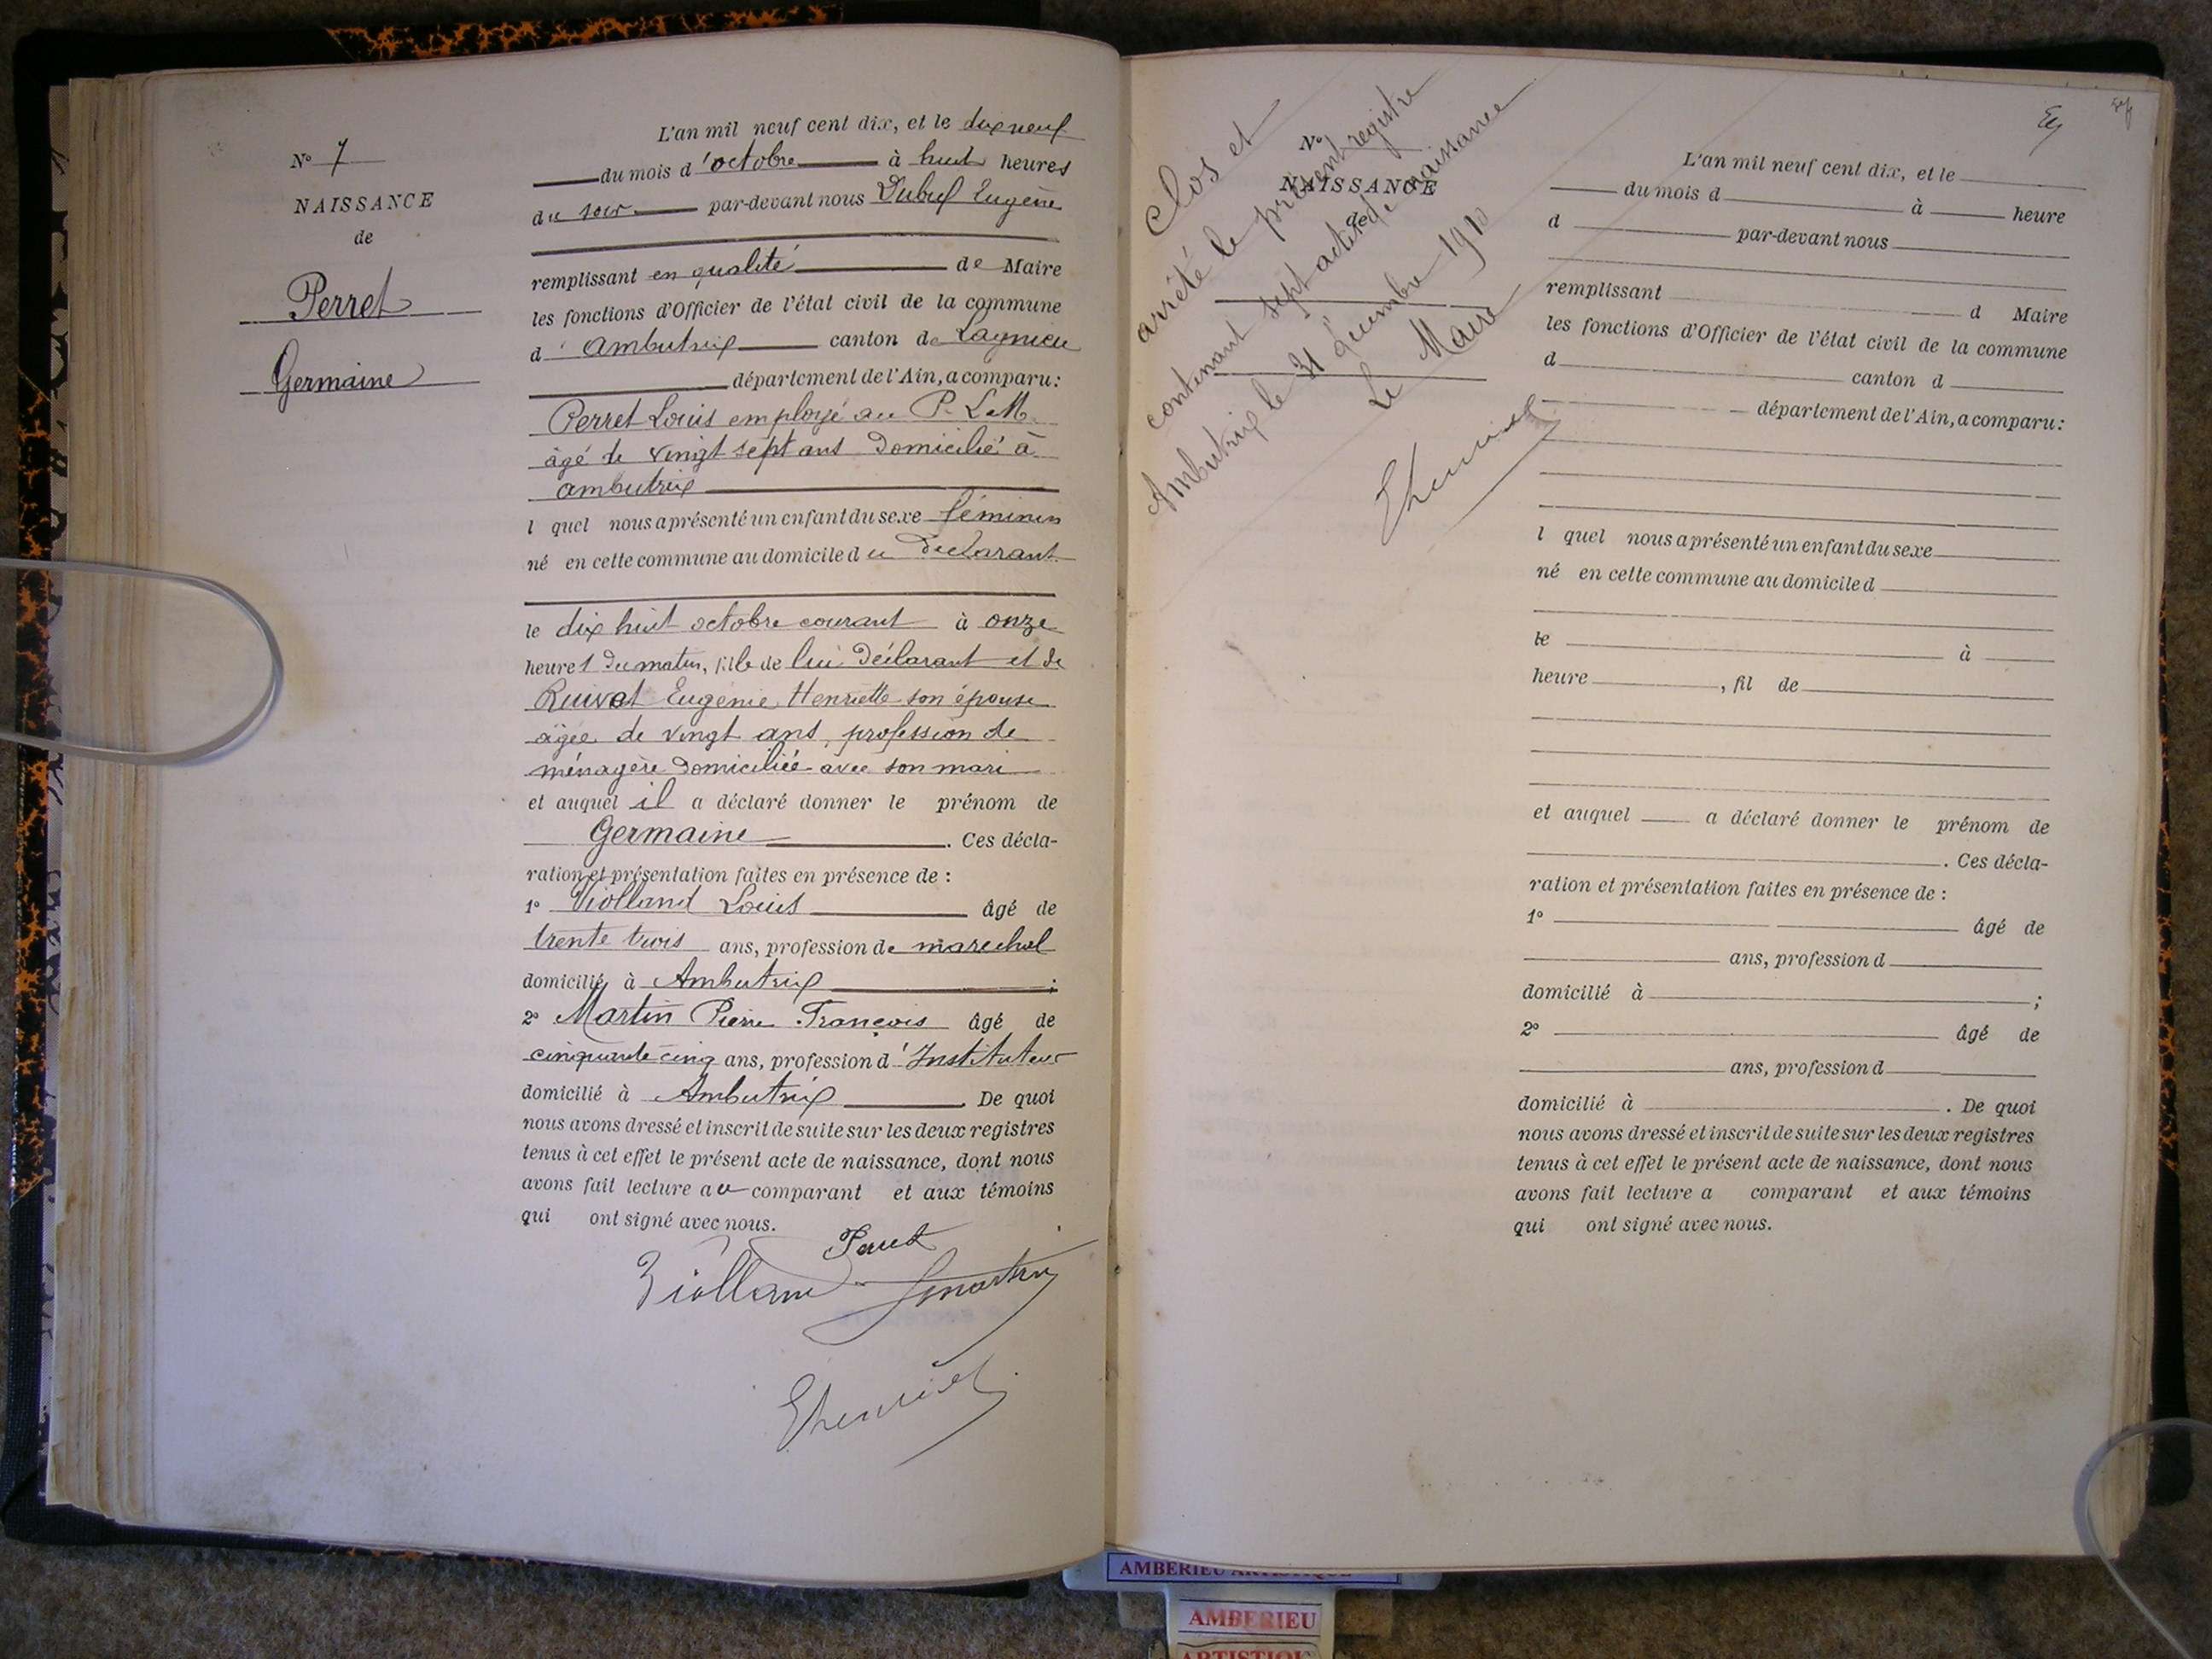 N° 7
NAISSANCE
de
Perret
Germaine
L'an mil neuf cent dix, et le dix neuf
du mois d'octobre à huit heures
du soir par-devant nous Eugène
remplissant en qualité de Maire
les fonctions d'Officier de l'état civil de la commune
d'Ambutrix canton de Lagnieu
département de l'Ain, a comparu:
Perret Louis employé au P.L.M.
âgé de vingt sept ans domicilié à
ambutrix
l quel nous a présenté un enfant du sexe féminin
né en cette commune au domicile du déclarant
le dix huit octobre courant à onze
heures du matin, fille de lui déclarant et de
Eugénie Henriette son épouse
âgée de vingt ans, profession de
ménagère domiciliée avec son mari
et auquel il a déclaré donner le prénom de
Germaine. Ces décla-
ration et présentation faites en présence de :
1° Violland Louis âgé de
trente trois ans, profession de marechal
domicilié à Ambutrix ;
2° Martin Pierre François âgé de
cinquante cinq ans, profession d'Instituteur
domicilié à Ambutrix. De quoi
nous avons dressé et inscrit de suite sur les deux registres
tenus à cet effet le présent acte de naissance, dont nous
avons fait lecture au comparant et aux témoins
qui ont signé avec nous.
Perret
Violland
Clos et
arrêté le présent registre
contenant sept actes de naissance
Ambutrix le 31 décembre 1910
Le Maire
N°
NAISSANCE
de
L'an mil neuf cent dix, et le
du mois d à heure
d par-devant nous
remplissant d Maire
les fonctions d'Officier de l'état civil de la commune
d canton d
département de l'Ain, a comparu:
l quel nous a présenté un enfant du sexe
né en cette commune au domicile d
le à
heure , fil de
et auquel a déclaré donner le prénom de
. Ces décla-
ration et présentation faites en présence de :
1° âgé de
ans, profession d
domicilié à ;
2° âgé de
ans, profession d
domicilié à . De quoi
nous avons dressé et inscrit de suite sur les deux registres
tenus à cet effet le présent acte de naissance, dont nous
avons fait lecture a comparant et aux témoins
qui ont signé avec nous.
AMBERIEU ARTISTIQUE
AMBERIEU